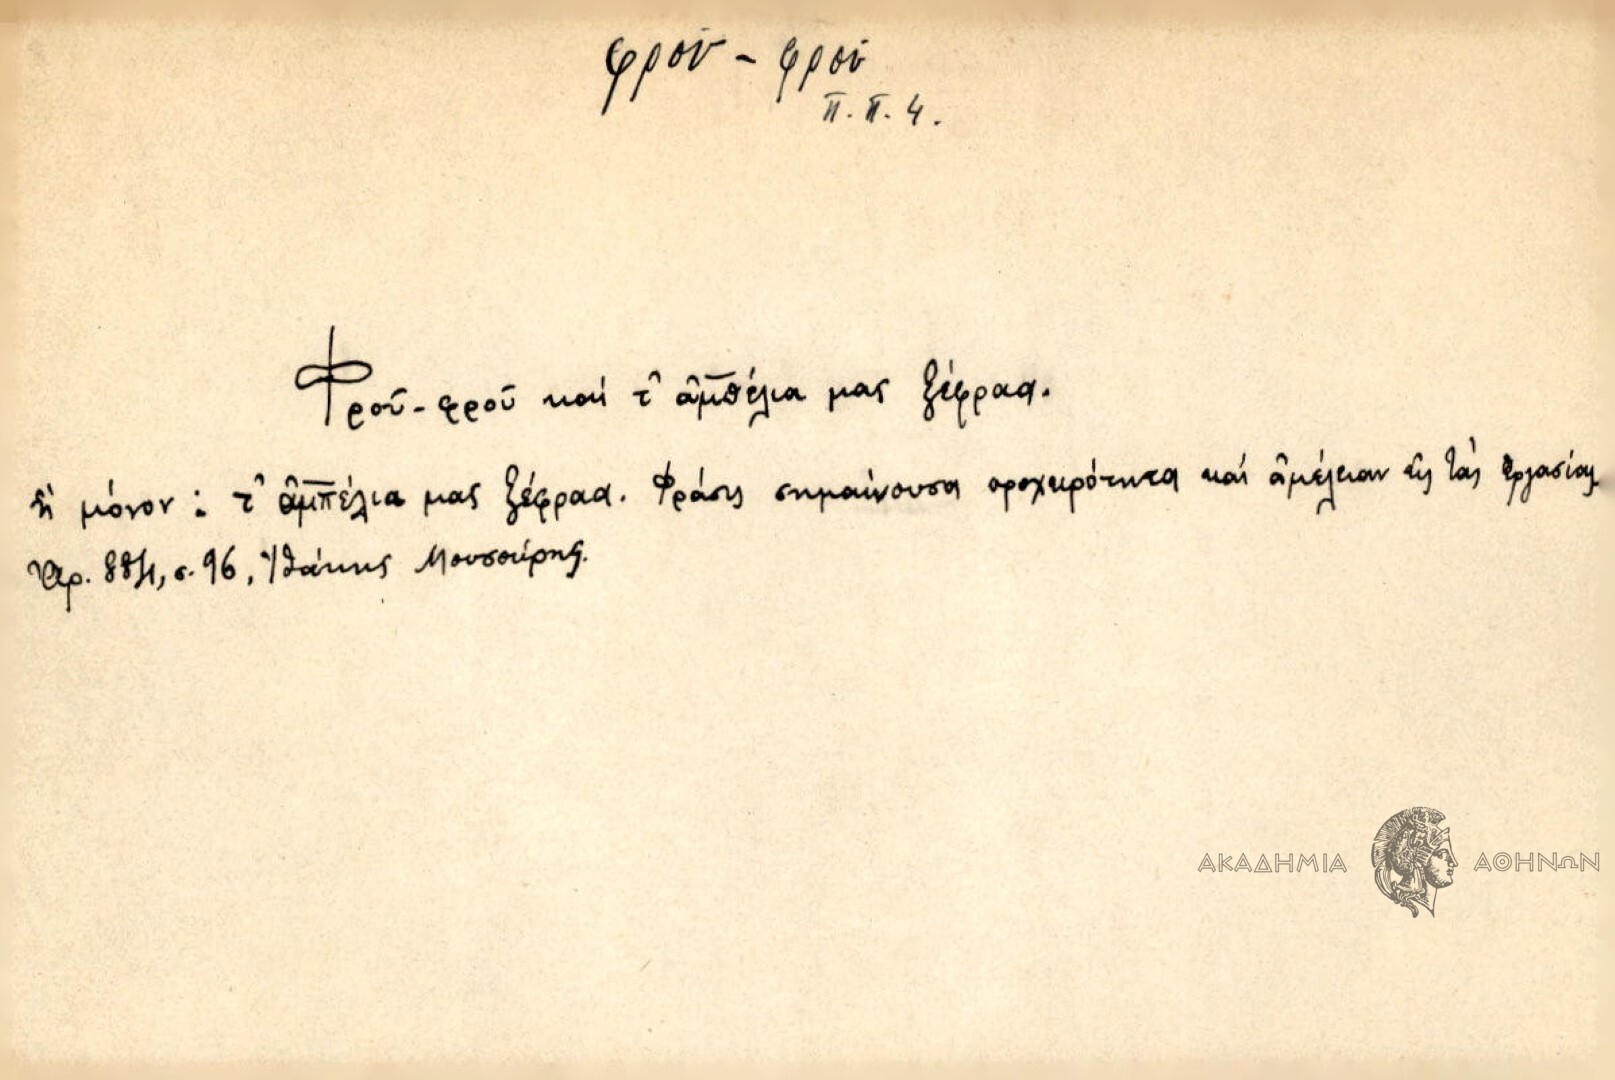 φρού - φρού
π.π. 4.
Φρού-φρού καί τ' ἀμπέλια μας ξέφραα.
ἤ μόνον : τ' ἀμπέλια μας ξέφραα. Φράσις σημαίνουσα προχειρότητα καί ἀμέλειαν εἰς τάς ἐργασίας
Ἀρ. σ. 96, Ἰθάκης Μουσούρης.
ΑΚΑΔΗΜΙΑ ΑΘΗΝΩΝ